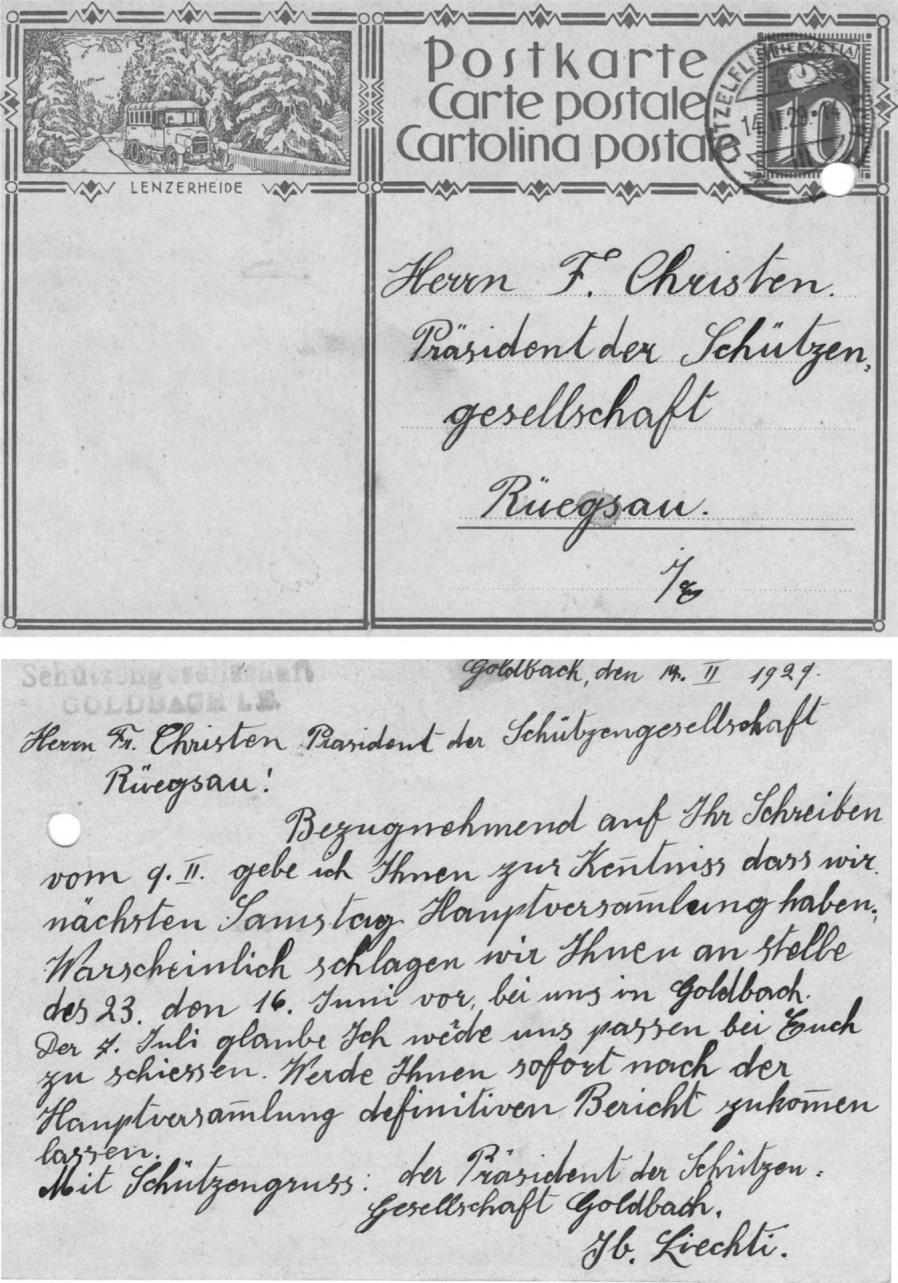 Postkarte
Carte postale
Cartolina postale
HELVETIA
10
14.II.29
LENZERHEIDE
Herrn F. Christen.
Präsident der Schützen,
gesellschaft
Rüegsau.
i/E
Schützengesellschaft
GOLDBACH i.E.
Goldbach, den 14. II 1929.
Herrn Fr. Christen Präsident der Schützengesellschaft
Rüegsau!
Bezugnehmend auf Ihr Schreiben
vom 9. II. gebe ich Ihnen zur Ken̄tniss dass wir
nächsten Samstag Hauptversam̄lung haben.
Warscheinlich schlagen wir Ihnen an stelbe
des 23. den 16. Juni vor, bei uns in Goldbach.
Der 7. Juli glaube Ich wërde uns passen bei Euch
zu schiessen. Werde Ihnen sofort nach der
Hauptversam̄lung definitiven Bericht zukom̄en
lassen.
Mit Schützengruss: der Präsident der Schützen,
Gesellschaft Goldbach.
Jb. Liechti.